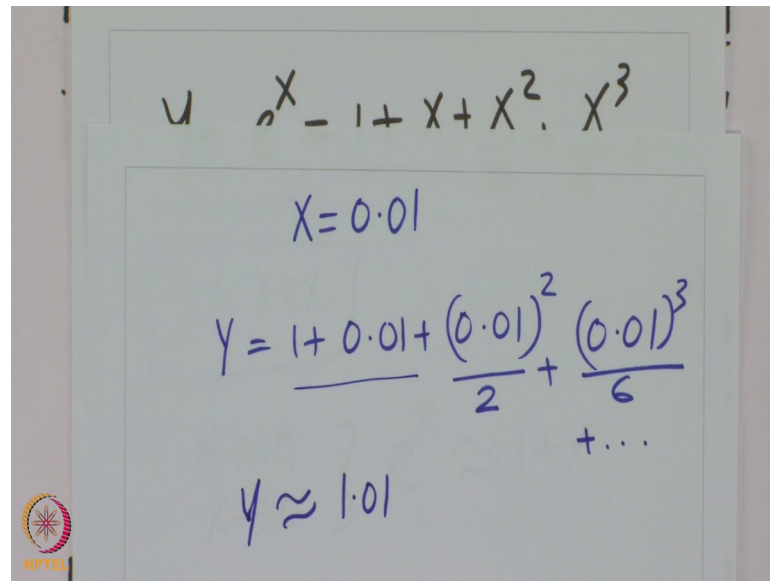 y = e^x = 1 + x + x^2 + x^3
x = 0.01
y = 1 + 0.01 + (0.01)^2/2 + (0.01)^3/6
+ ...
y ≈ 1.01
NPTEL